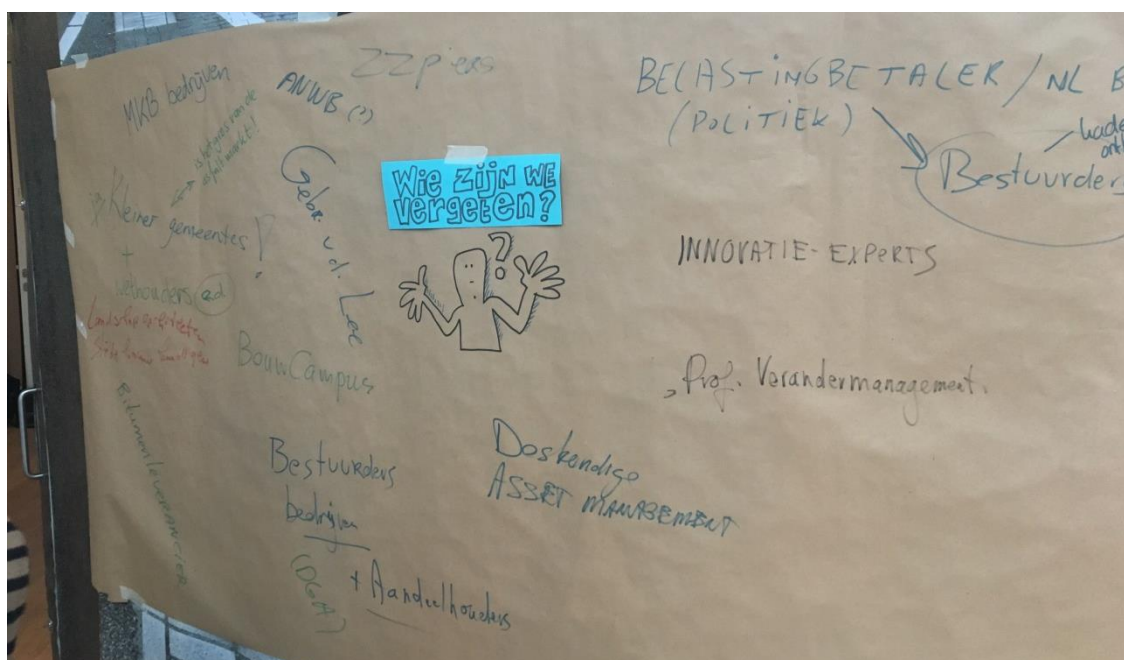 MKB bedrijven
ANWB (?)
ZZp'ers
BELASTINGBETALER / NL B
(POLITIEK)
Bestuurders
is het gros van de
asfaltmarkt!!
Kleiner gemeentes !
+
wethouders ed
Landschaparchitecten
Gebr. v.d. Lee
Wie zijn we
vergeten?
?
INNOVATIE-EXPERTS
BouwCampus
Prof. Verandermanagement.
Bitumenleverancier
Bestuurders
bedrijven
(DGA)
+ Aandeelhouders
Doskendige
ASSET MANAGEMENT